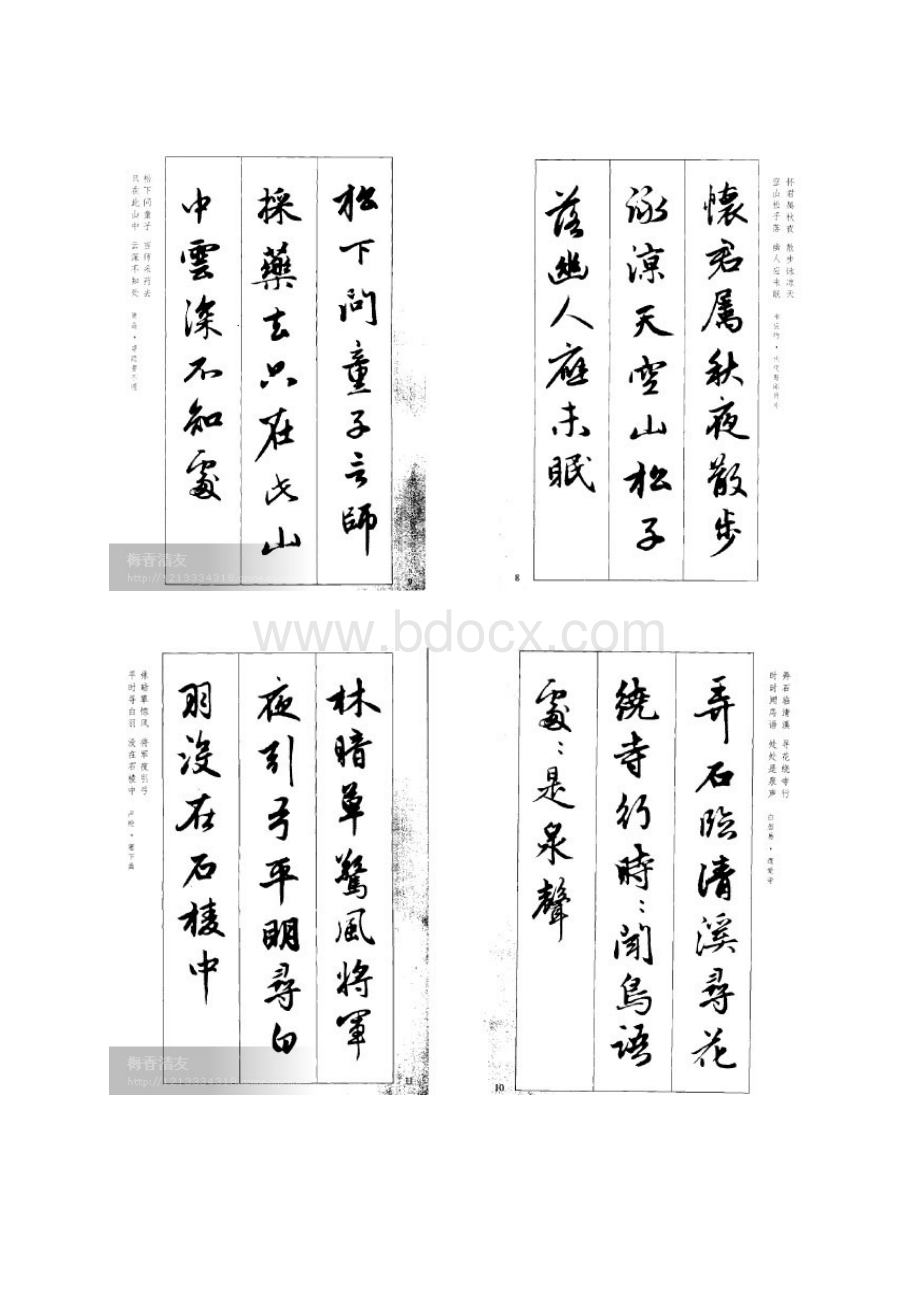 怀君属秋夜 散步咏凉天
空山松子落 幽人应未眠
韦应物·秋夜寄邱员外
懷君属秋夜散步
詠涼天空山松子
落幽人應未眠
8
松下問童子言師
採藥去只在此山
中雲深不知處
松下问童子 言师采药去
只在此山中 云深不知处
贾岛·寻隐者不遇
9
梅香洁友
www.bdocx.com
弄石临清溪 寻花绕寺行
时时闻鸟语 处处是泉声
白居易·遗爱寺
弄石臨清溪尋花
繞寺行時:聞鳥語
處:是泉聲
10
林暗草驚風将軍
夜引弓平明尋白
羽没在石棱中
林暗草惊风 将军夜引弓
平时寻白羽 没在石棱中
卢纶·塞下曲
11
梅香洁友